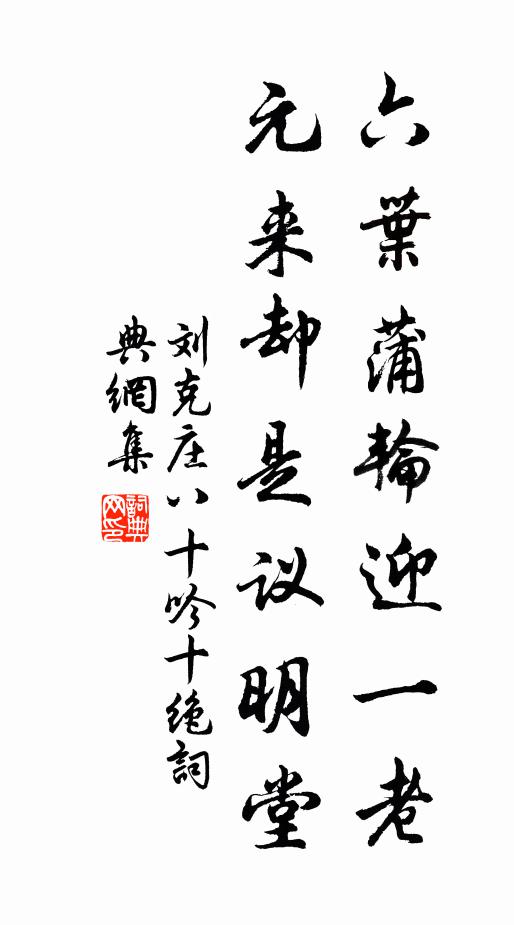 六葉蒲輪迎一老
元来却是议明堂
刘克庄八十吟十绝詞
典網集
詞典网印